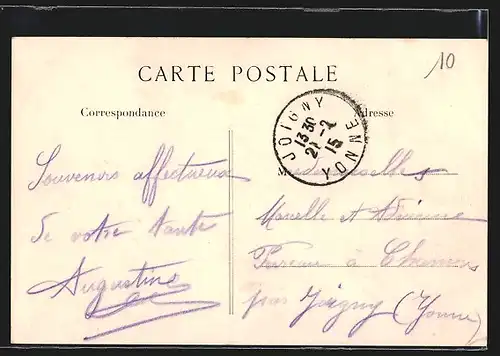 CARTE POSTALE
10
Correspondance
Adresse
JOIGNY
13 30
21 -2
15
YONNE
Souvenirs affectueux
de votre tante
Augustine
Mesdemoiselles
et
à
par Joigny (Yonne)